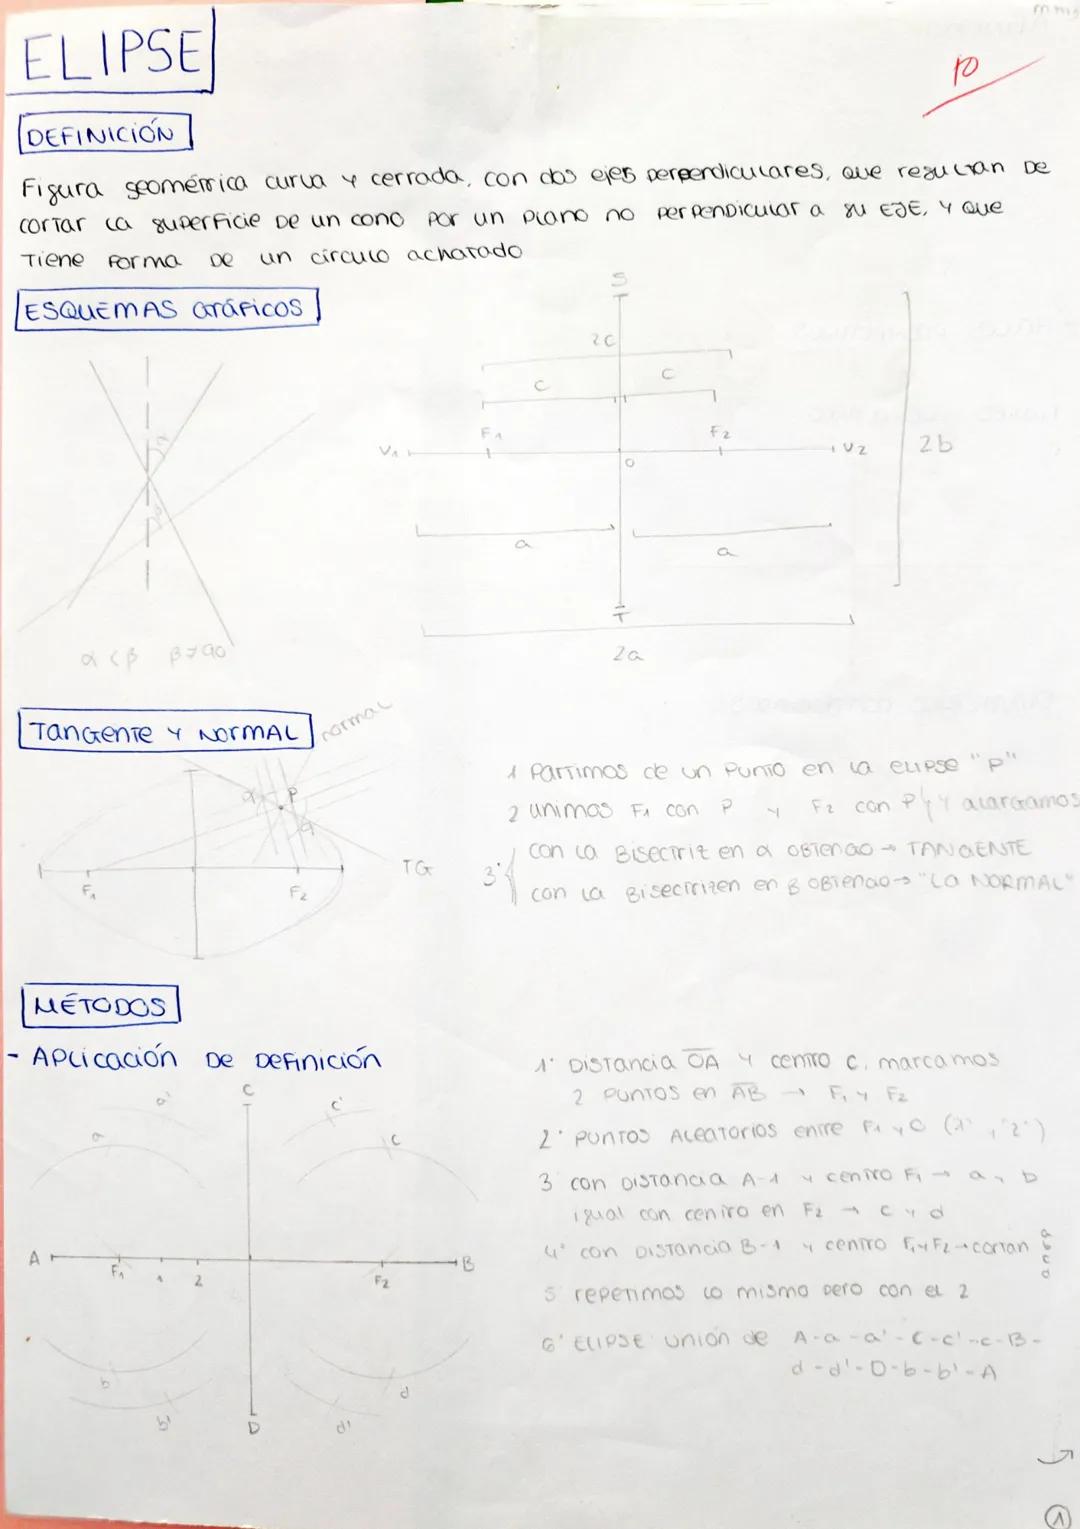 ELIPSE
10
DEFINICIÓN
Figura geométrica curva y cerrada, con dos ejes perpendiculares, que resultan de
cortar la superficie de un cono por un plano no perpendicular a su EJE, y que
Tiene forma de un círculo achatado
ESQUEMAS GRÁFICOS
α
α < β β≠90
S
2c
c c
F1 F2
V1 V2
O
2b
a a
T
2a
TANGENTE Y NORMAL
normal
α P
TG
F1 F2
1 Partimos de un punto en la elipse "P"
2 unimos F1 con P y F2 con P y alargamos
3° con la Bisectriz en α OBTENGO → TANGENTE
con la Bisectrizen en β OBTENGO → "LA NORMAL"
MÉTODOS
- Aplicación de definición
a' C c'
a c
A F1 1 2 F2 B
b d
b' D d'
1° Distancia OA y centro C, marcamos
2 puntos en AB → F1 y F2
2° puntos aleatorios entre F1 y O (1°, 2°)
3 con distancia A-1 y centro F1 → a y b
igual con centro en F2 → c y d
4° con distancia B-1 y centro F1 y F2 → cortan a b c d
5 repetimos lo mismo pero con el 2
6° Elipse unión de A-a-a'-C-c'-c-B-
d-d'-D-b-b'-A
1